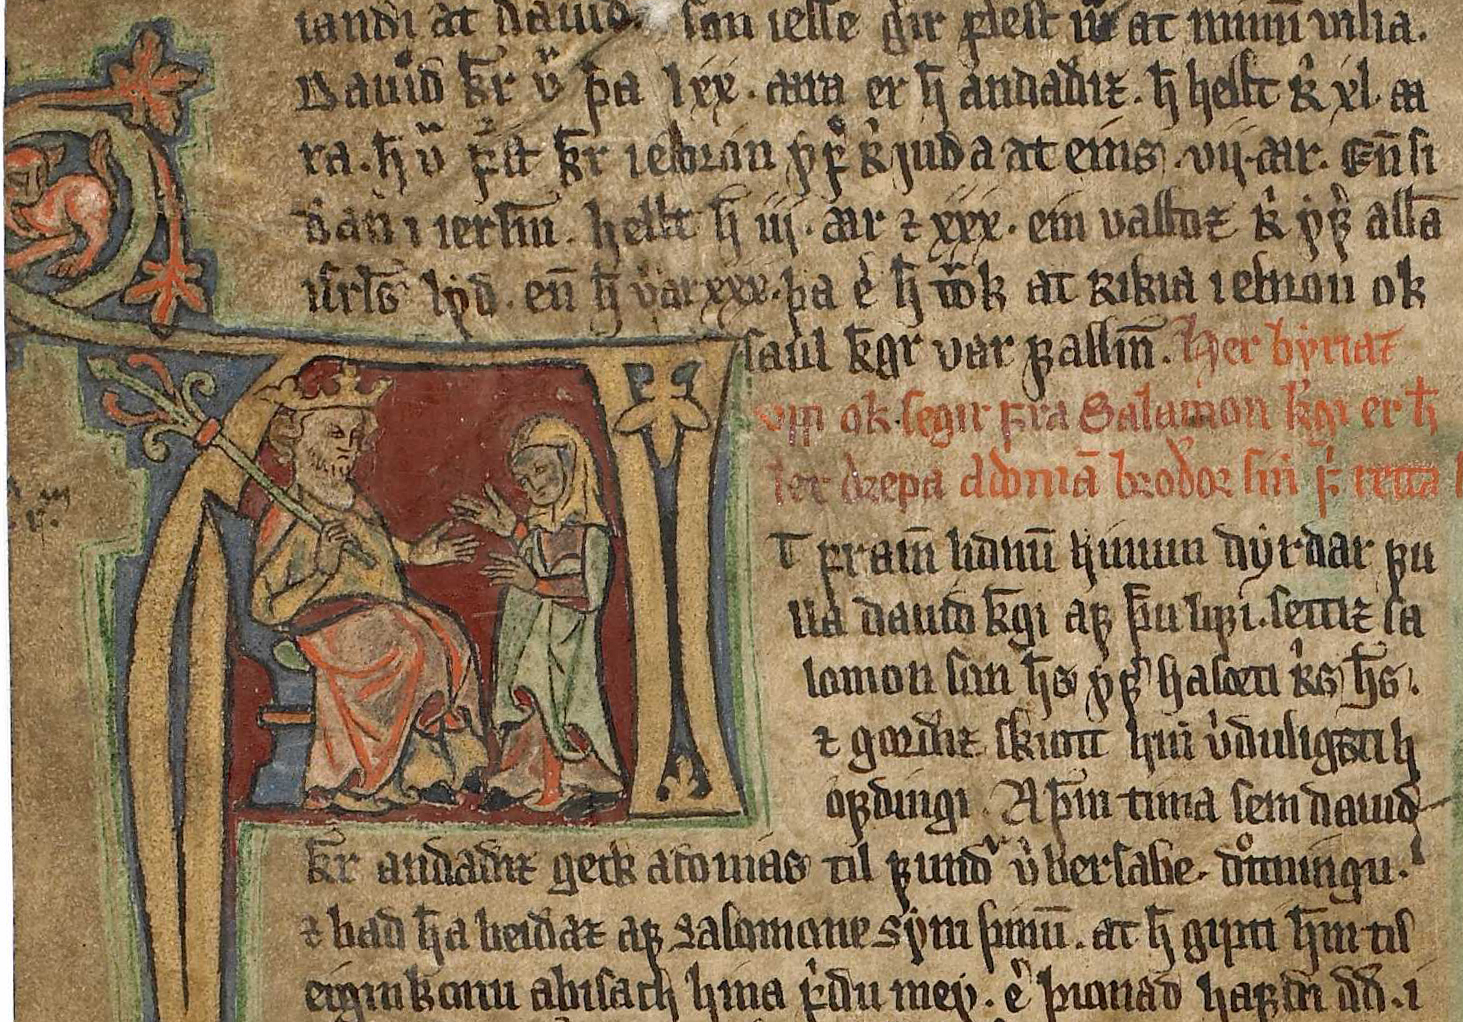 iandi at dauid. son iesse gir flest at minni vilia.
Dauid kr̄ v̄ þa lxx. aara er h̄ andadiz. h̄ hellt r̊ xl. aa
ra. h̄ v̄ fst kr̄ i ebron yf r̊ juda at eins .vij. aar. En̄ si
dan i ierlm̄. hellt h̄ iij. aar ⁊ xxx. ein valldz r̊ yf̊ allā
isrls̄ lyd. en̄ h̄ var xxx. þa e̊ h̄ tok at rikia i ebron ok
saul kgr̄ var fallin̄. Her byriaz
vpp ok segir fra Salamon kgi̅ er h̄
let drepa adoniā brodor sin f̊ retta
T fraim̄ hdnu̅ himin dyrdar fu
lla dauid kgi̅ af þu lifi. settiz sa
lomon son hs̄ yf̊ hasæti r̊s hs̄.
⁊ gordiz skiott hin̄ v̊duligsti h
ofdingi. A þm̄ tima sem dauid
kr̄ andadiz geck adonias til fundr v̊ bersabe. drottningu.
⁊ bad h̄a beidaz af Salomone syni sinu̅. at h̄ gipti hm̄ til
eiginkonu abisach hina f̊du mey. e̊ þionad hafdi dd̄. i